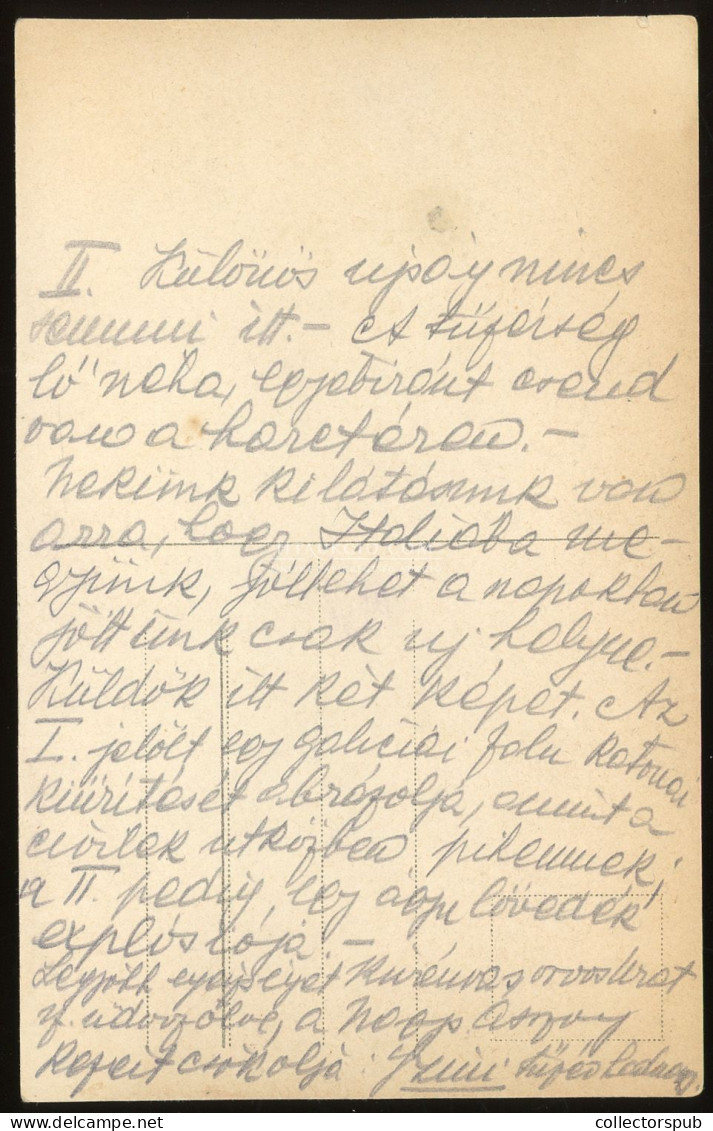 II. Különös ujság nincs
semmi itt. – A tüzérség
lő néha, egyebiránt csend
van a harctéren. –
Nekünk kilátásunk van
arra, hogy Itáliába me-
gyünk, jóllehet a napokban
jöttünk csak uj helyre. –
Küldök itt két képet. Az
I. jelölt egy galiciai falu katonai
kiürítését ábrázolja, amint a
civilek utközben pihennek;
a II. pedig egy ágyu lövedék
explósiója. –
Legjobb egészséget orvos urat
üdvözölve, a Nagyasszony
kezeit csókolja: tüzér
collectorspub